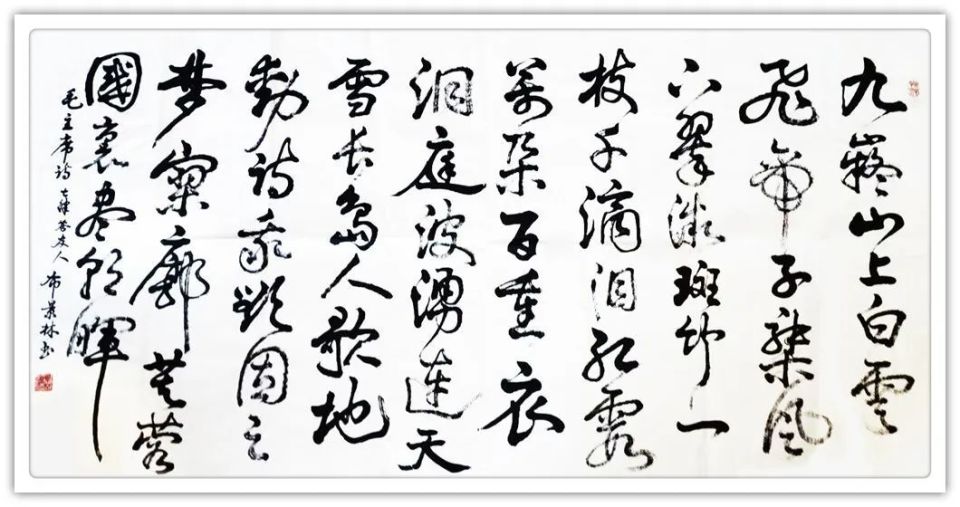 九嶷山上白雲
飛帝子乘風
下翠微斑竹一
枝千滴泪红霞
萬朵百重衣
洞庭波湧連天
雪長島人歌地
動诗我欲因之
梦寥廓芙蓉
國裏盡朝暉
毛主席诗七律答友人 景林书